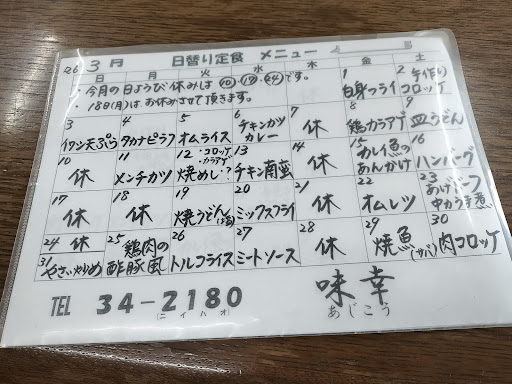 26 3月 日替り定食 メニュー
日 月 火 水 木 金 土
今月の日ようび休みは⑩・⑰・㉔です。
・18日(月)はお休みさせて頂きます。
1 白身フライ
2 手作りコロッケ
3 イワシ天ぷら
4 タカナピラフ
5 オムライス
6 チキンカツカレー
7 休
8 鶏カラアゲ
9 皿うどん
10 休
11 メンチカツ
12 ・コロッケ・カラアゲ 焼めし?
13 チキン南蛮
14 休
15 カレイ魚のあんかけ
16 ハンバーグ
17 休
18 休
19 焼うどん
20 ミックスフライ
21 休
22 オムレツ
23 あげドーフ中カ子煮
24 休
25 鶏肉の酢豚風
26 トルコライス
27 ミートソース
28 休
29 焼魚(サバ)
30 肉コロッケ
31 やさい炒め
TEL 34-2180
(ニイハオ)
味幸
あじこう